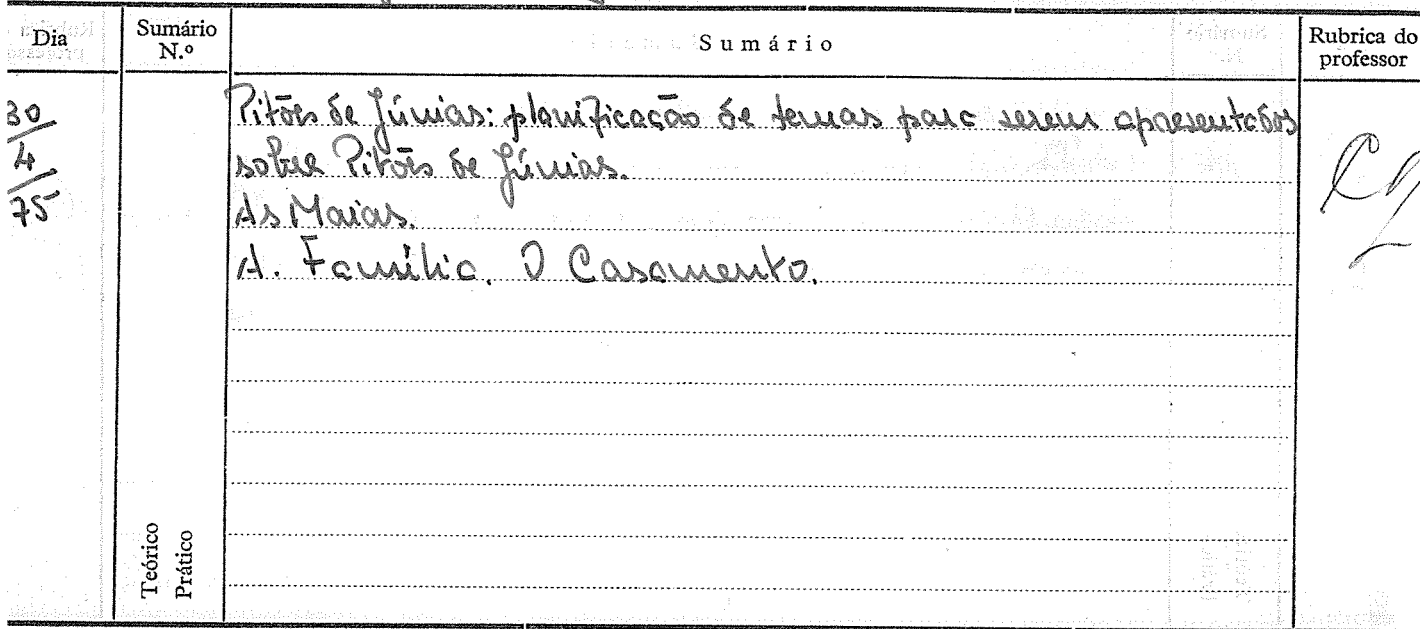 Dia
Sumário N.º
Sumário
Rubrica do professor
30/4/75
Pitões de Júnias: planificação de temas para serem apresentados
sobre Pitões de Júnias.
As Maias.
A. Família. O Casamento.
Teórico
Prático